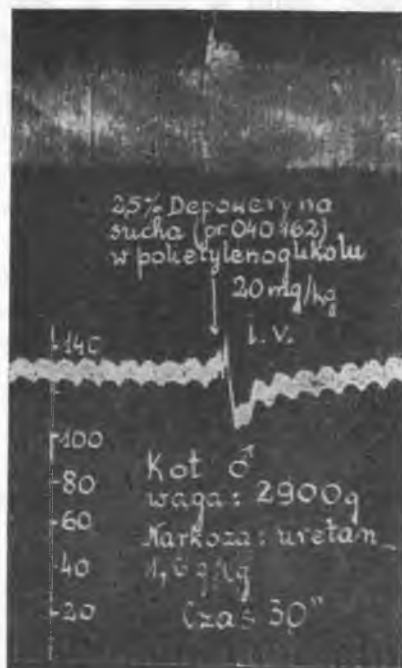 2,5% Depowery na
sucha (pr. 040462)
w polietylenoglikolu
20 mg/kg
i. v.
140
100
80
60
40
20
Kot ♂
waga: 2900g
Narkoza: uretan
1,6 g/kg
Czas 30"